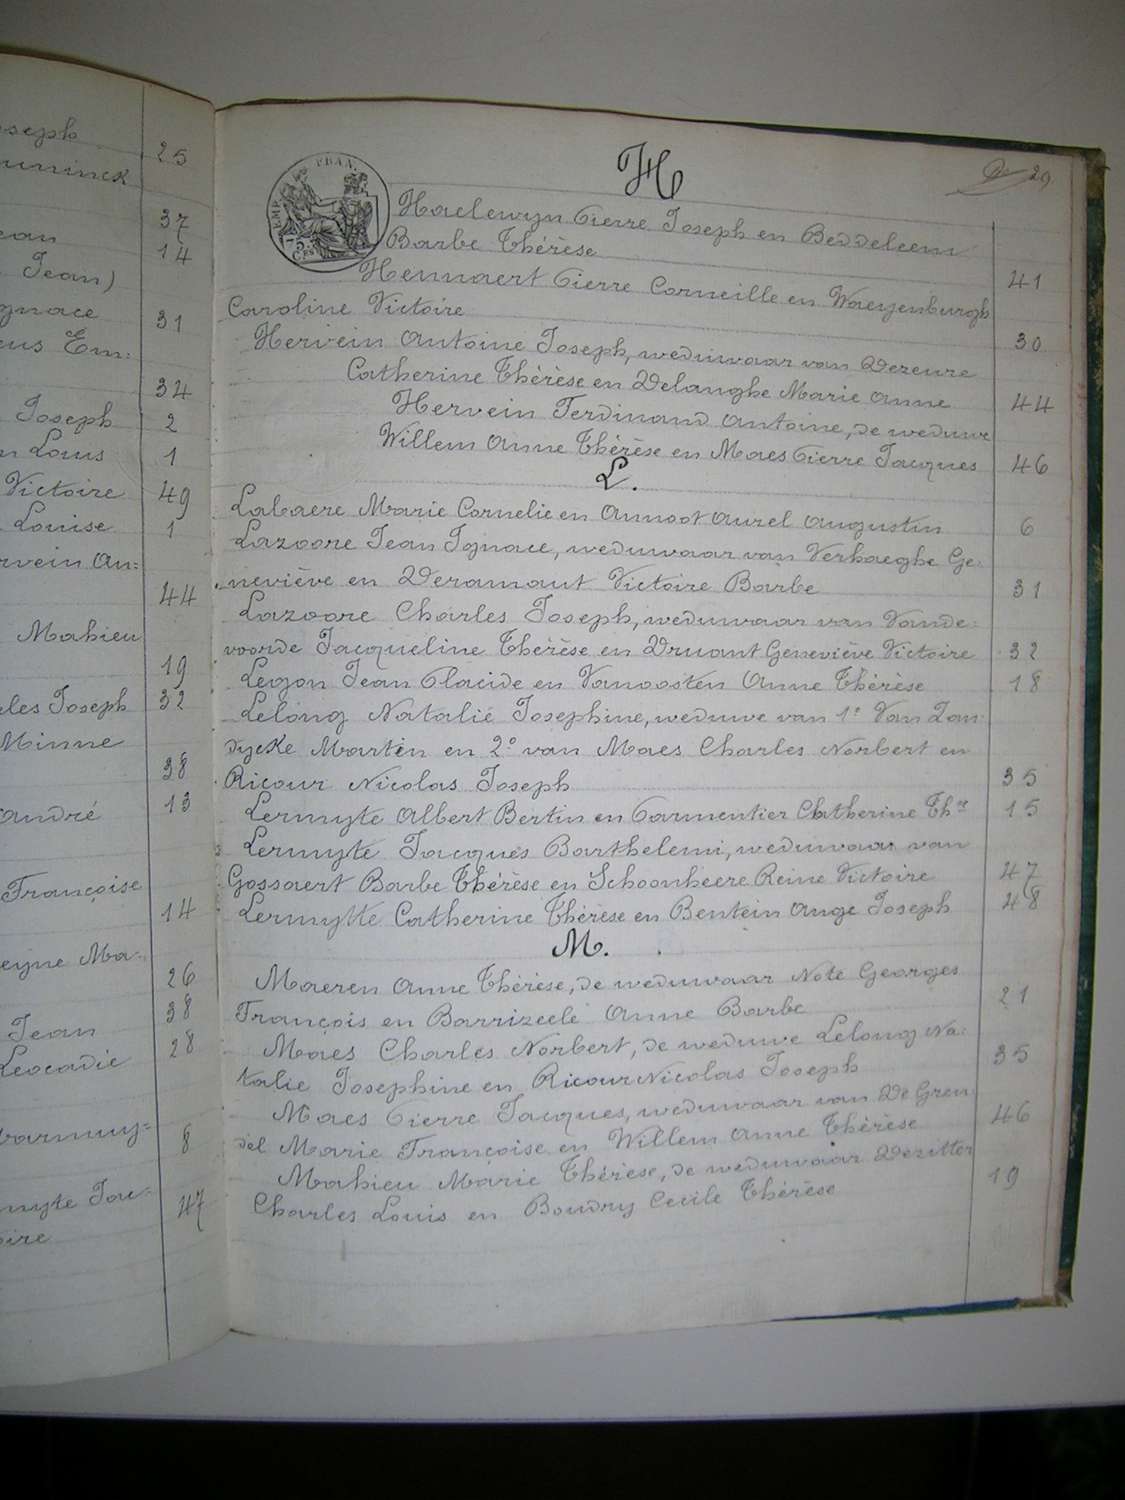 oseph
uninck 25
37
ean 14
Jean)
gnace 31
eus Em:
34
Joseph 2
n Louis 1
Victoire 49
Louise 1
rvein An:
44
Mahieu
19
les Joseph 32
Minne
38
André 13
Françoise
14
eyne Ma-
26
38
Jean 28
Leocadie
8
myte Jac-
47
oire
29.
H
EMP. FRAN.
75
CES
Haelewyn Pierre Joseph en Beddeleem
Barbe Thérèse 41
Hennaert Pierre Corneille en Waeyenburgh
Caroline Victoire 30
Hervein Antoine Joseph, weduwaar van Dezeure
Catherine Thérèse en Delanghe Marie Anne 44
Hervein Ferdinand Antoine, de weduwe
Willem Anne Thérèse en Maes Pierre Jacques 46
L.
Labaere Marie Cornelie en Annoot Aurel Augustin 6
Lazoore Jean Ignace, weduwaar van Verhaeghe Ge-
neviève en Deramaut Victoire Barbe 31
Lazoore Charles Joseph, weduwaar van Vande-
voorde Jacqueline Thérèse en Druant Geneviève Victoire 32
Legon Jean Placide en Vanoosten Anne Thérèse 18
Lelong Natalié Josephine, weduwe van 1° Van Zan
dycke Martin en 2° van Maes Charles Norbert en
Ricour Nicolas Joseph 35
Lermyte Albert Bertin en Parmentier Catherine Th.se 15
Lermyte Jacques Barthelemi, weduwaar van
Gossaert Barbe Thérèse en Schoonheere Reine Victoire 47
Lermytte Catherine Thérèse en Bentein Ange Joseph 48
M.
Maeren Anne Thérèse, de weduwaar Note Georges
François en Barrizeele Anne Barbe 21
Maes Charles Norbert, de weduwe Lelong Na-
talie Josephine en Ricour Nicolas Joseph 35
Maes Pierre Jacques, weduwaar van De Gren
del Marie Françoise en Willem Anne Thérèse 46
Mahieu Marie Thérèse, de weduwaar Dezitter
Charles Louis en Boudry Cecile Thérèse 19